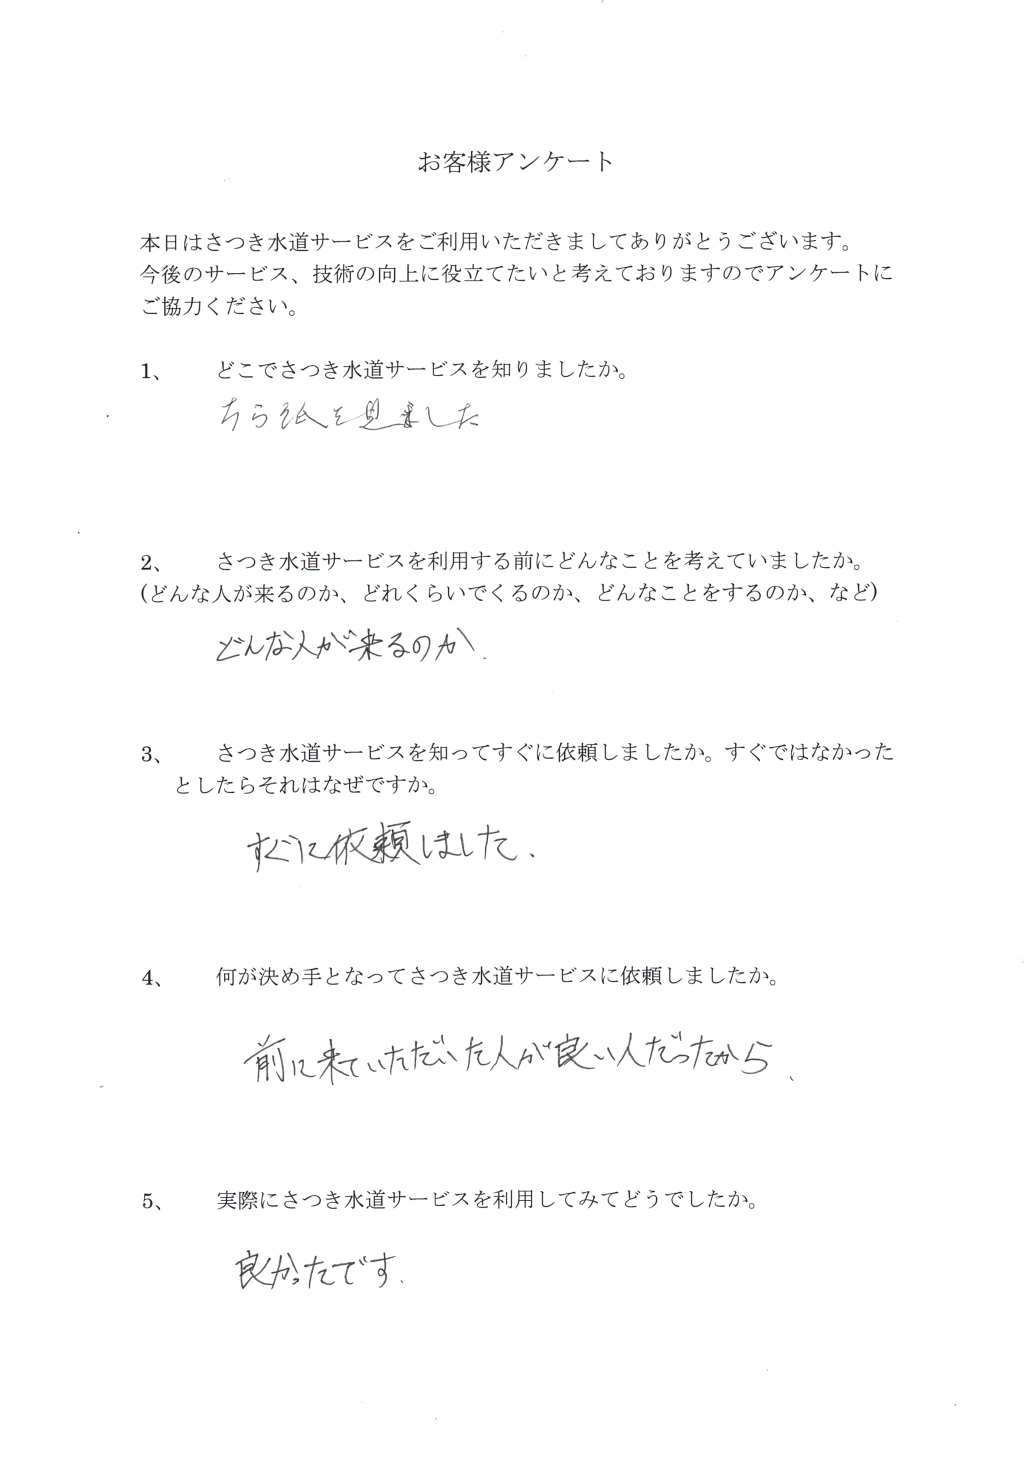 お客様アンケート
本日はさつき水道サービスをご利用いただきましてありがとうございます。
今後のサービス、技術の向上に役立てたいと考えておりますのでアンケートに
ご協力ください。
1、 どこでさつき水道サービスを知りましたか。
ちら紙を見ました
2、 さつき水道サービスを利用する前にどんなことを考えていましたか。
(どんな人が来るのか、どれくらいでくるのか、どんなことをするのか、など)
どんな人が来るのか.
3、 さつき水道サービスを知ってすぐに依頼しましたか。すぐではなかった
としたらそれはなぜですか。
すぐに依頼しました、
4、 何が決め手となってさつき水道サービスに依頼しましたか。
前に来ていただいた人が良い人だったから、
5、 実際にさつき水道サービスを利用してみてどうでしたか。
良かったです.